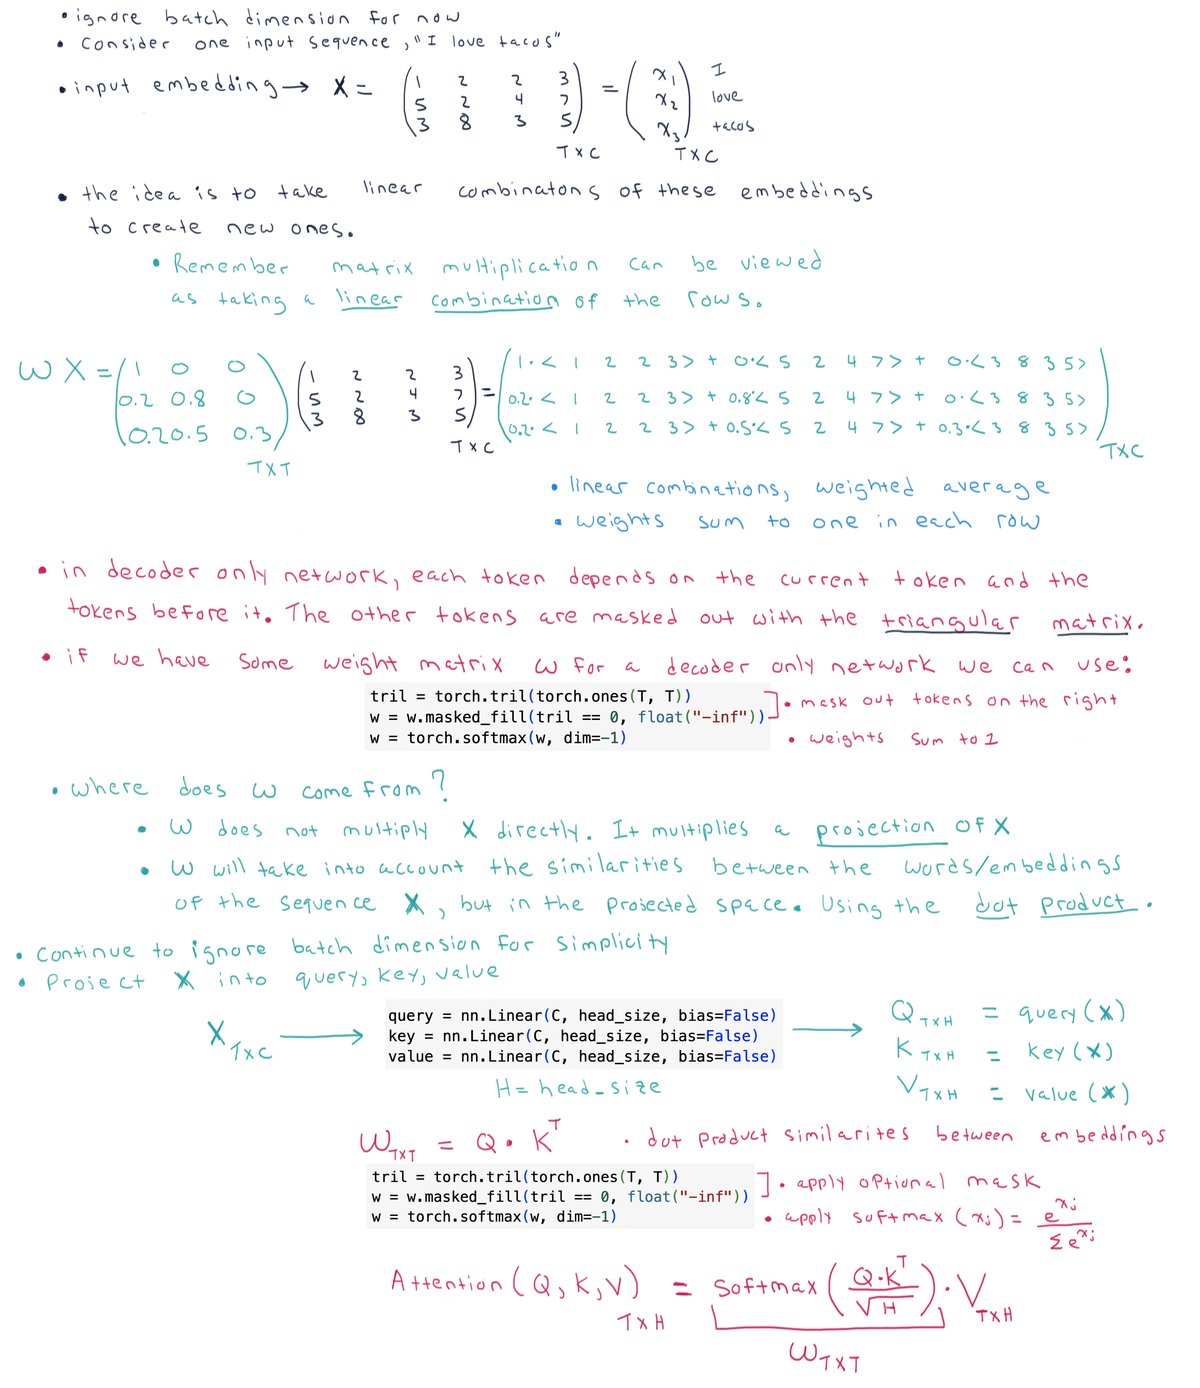 • ignore batch dimension for now
• Consider one input sequence, "I love tacos"
• input embedding → X = ( 1 2 2 3 ) = ( x₁ ) I
( 5 2 4 7 ) ( x₂ ) love
( 3 8 3 5 ) ( x₃ ) tacos
T x C T x C
• the idea is to take linear combinatons of these embeddings
to create new ones.
• Remember matrix multiplication can be viewed
as taking a linear combination of the rows.
W X = ( 1 0 0 ) ( 1 2 2 3 ) = ( 1·< 1 2 2 3> + 0·< 5 2 4 7> + 0·<3 8 3 5> )
( 0.2 0.8 0 ) ( 5 2 4 7 ) ( 0.2·< 1 2 2 3> + 0.8·< 5 2 4 7> + 0·<3 8 3 5> )
( 0.2 0.5 0.3 ) ( 3 8 3 5 ) ( 0.2·< 1 2 2 3> + 0.5·< 5 2 4 7> + 0.3·<3 8 3 5> )
TxT T x C TxC
• linear combinations, weighted average
• weights sum to one in each row
• in decoder only network, each token depends on the current token and the
tokens before it. The other tokens are masked out with the triangular matrix.
• if we have some weight matrix W for a decoder only network we can use:
tril = torch.tril(torch.ones(T, T))
w = w.masked_fill(tril == 0, float("-inf")) ] • mask out tokens on the right
w = torch.softmax(w, dim=-1) • weights sum to 1
• where does W come from?
• W does not multiply X directly. It multiplies a projection of X
• W will take into account the similarities between the words/embeddings
of the sequence X, but in the projected space. Using the dot product.
• Continue to ignore batch dimension for simplicity
• Project X into query, key, value
X TxC → query = nn.Linear(C, head_size, bias=False) → Q TxH = query(X)
key = nn.Linear(C, head_size, bias=False) K TxH = Key(X)
value = nn.Linear(C, head_size, bias=False) V TxH = value(X)
H = head_size
W TxT = Q • Kᵀ • dot product similarites between embeddings
tril = torch.tril(torch.ones(T, T))
w = w.masked_fill(tril == 0, float("-inf")) ] • apply optional mask
w = torch.softmax(w, dim=-1) • apply softmax (xⱼ) = e^xⱼ / Σ e^xⱼ
Attention (Q, K, V) TxH = Softmax ( Q·Kᵀ / √H ) · V TxH
W TxT